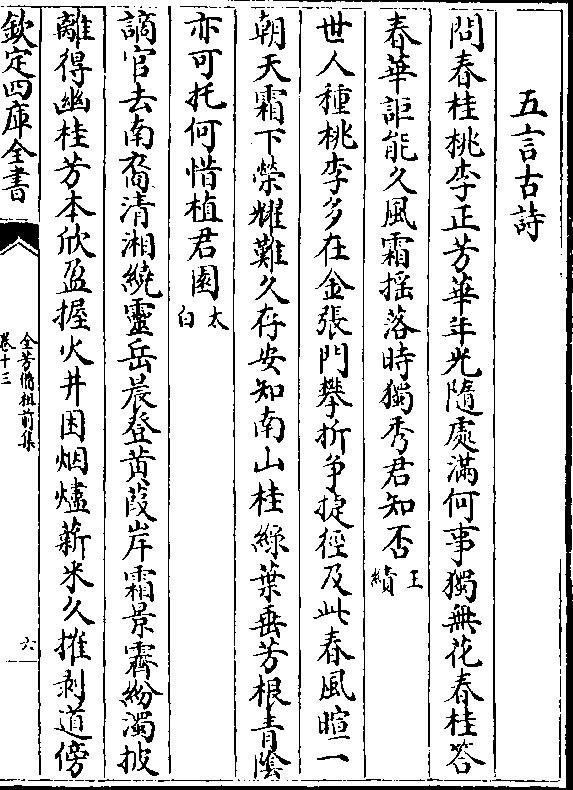 五言古詩
問春桂桃李正芳華年光隨處滿何事獨無花春桂答
春華詎能久風霜揺落時獨秀君知否王績
世人種桃李多在金張門攀折争捷徑及此春風暄一
朝天霜下榮耀難久存安知南山桂緑葉垂芳根青隂
亦可托何惜植君園太白
謫官去南裔清湘繞靈岳晨登黄葭岸霜景霽紛濁披
離得幽桂芳本欣盈握火井困烟燼薪米久摧剥道傍
欽定四庫全書
全芳備祖前集
卷十三
六